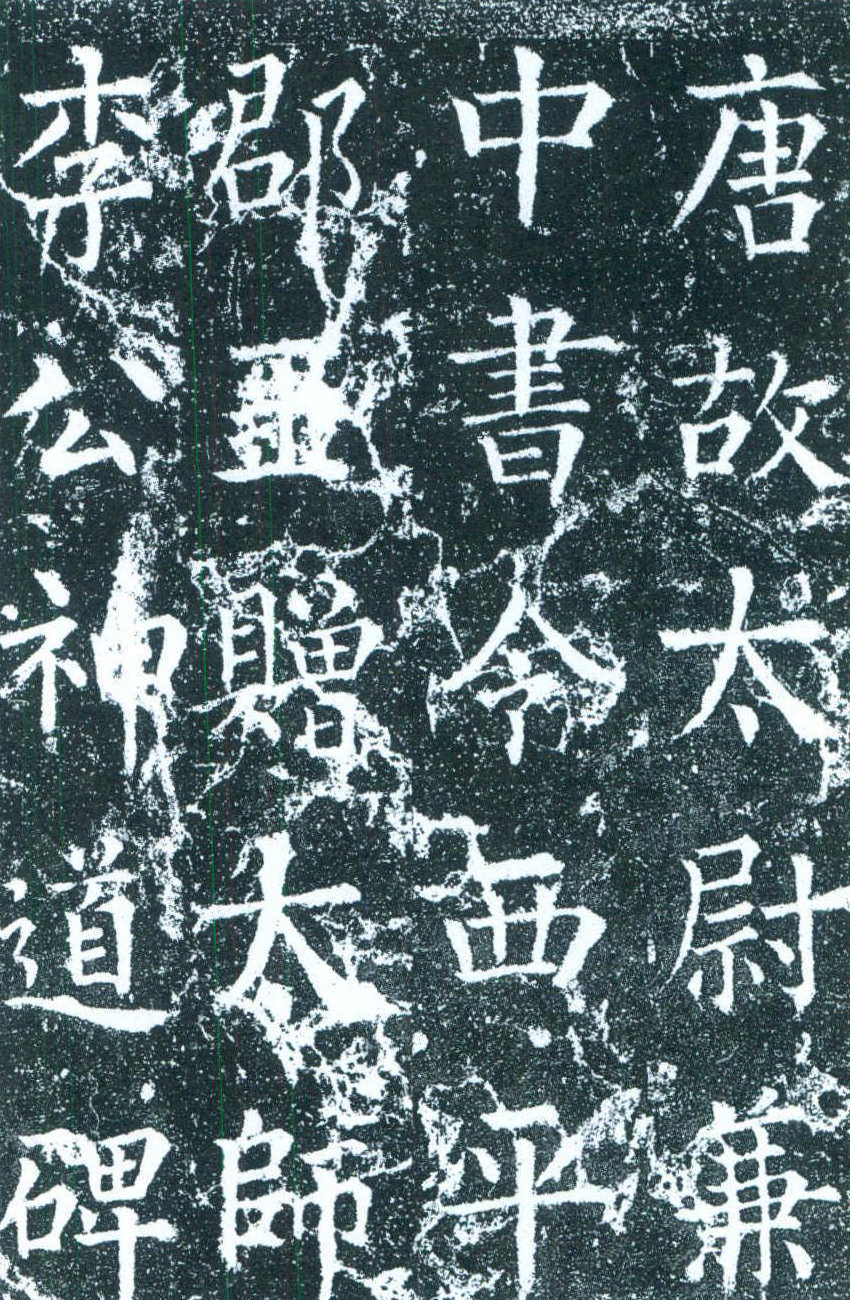 唐故太尉兼
中書令西平
郡王贈太師
李公神道碑